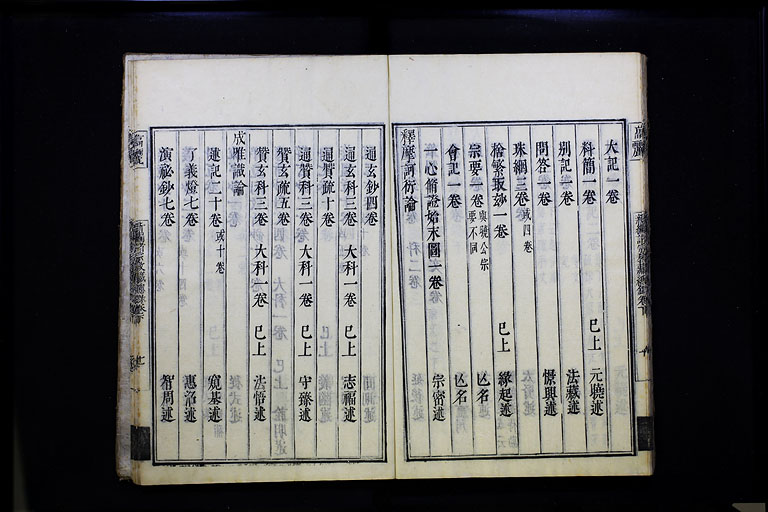 大記一卷
科簡一卷　已上　元曉述
別記一卷　法藏述
問答一卷　憬興述
珠網三卷或四卷
栓繁取妙一卷　已上　緣起述
宗要一卷與曉公宗要不同　亡名
會記一卷　亡名
一心脩證始末圖一卷　宗密述
釋摩訶衍論
通玄鈔四卷
通玄科三卷　大科一卷　已上　志福述
通贊疏十卷
通贊科三卷　大科一卷　已上　守臻述
贊玄疏五卷
贊玄科三卷　大科一卷　已上　法悟述
成唯識論
述記二十卷或十卷　窺基述
了義燈七卷　惠沼述
演祕鈔七卷　智周述